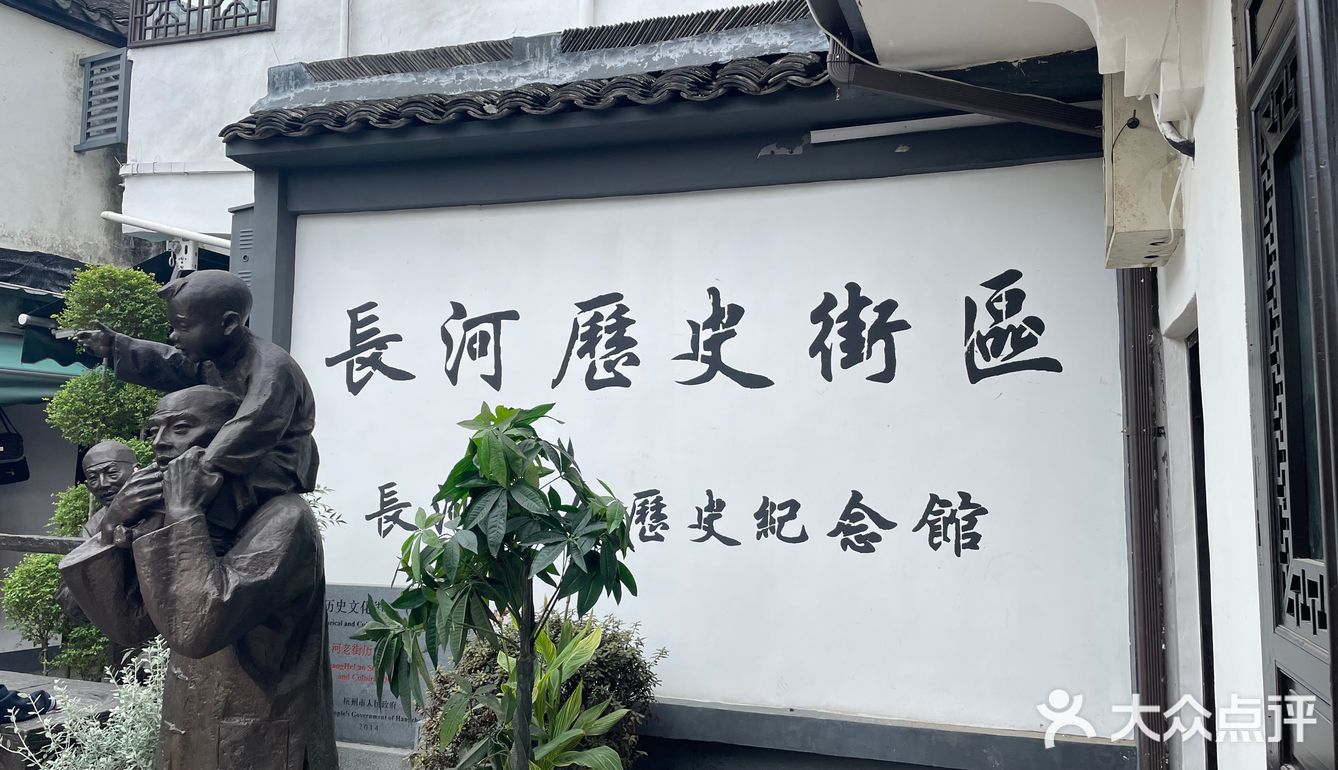 長河歷史街區
長河 歷史紀念館
历史文化
rical and Cu
河老街历
angHeLao S
and Cultur
杭州市人民政府
ople's Government of Hang
2014
大众点评